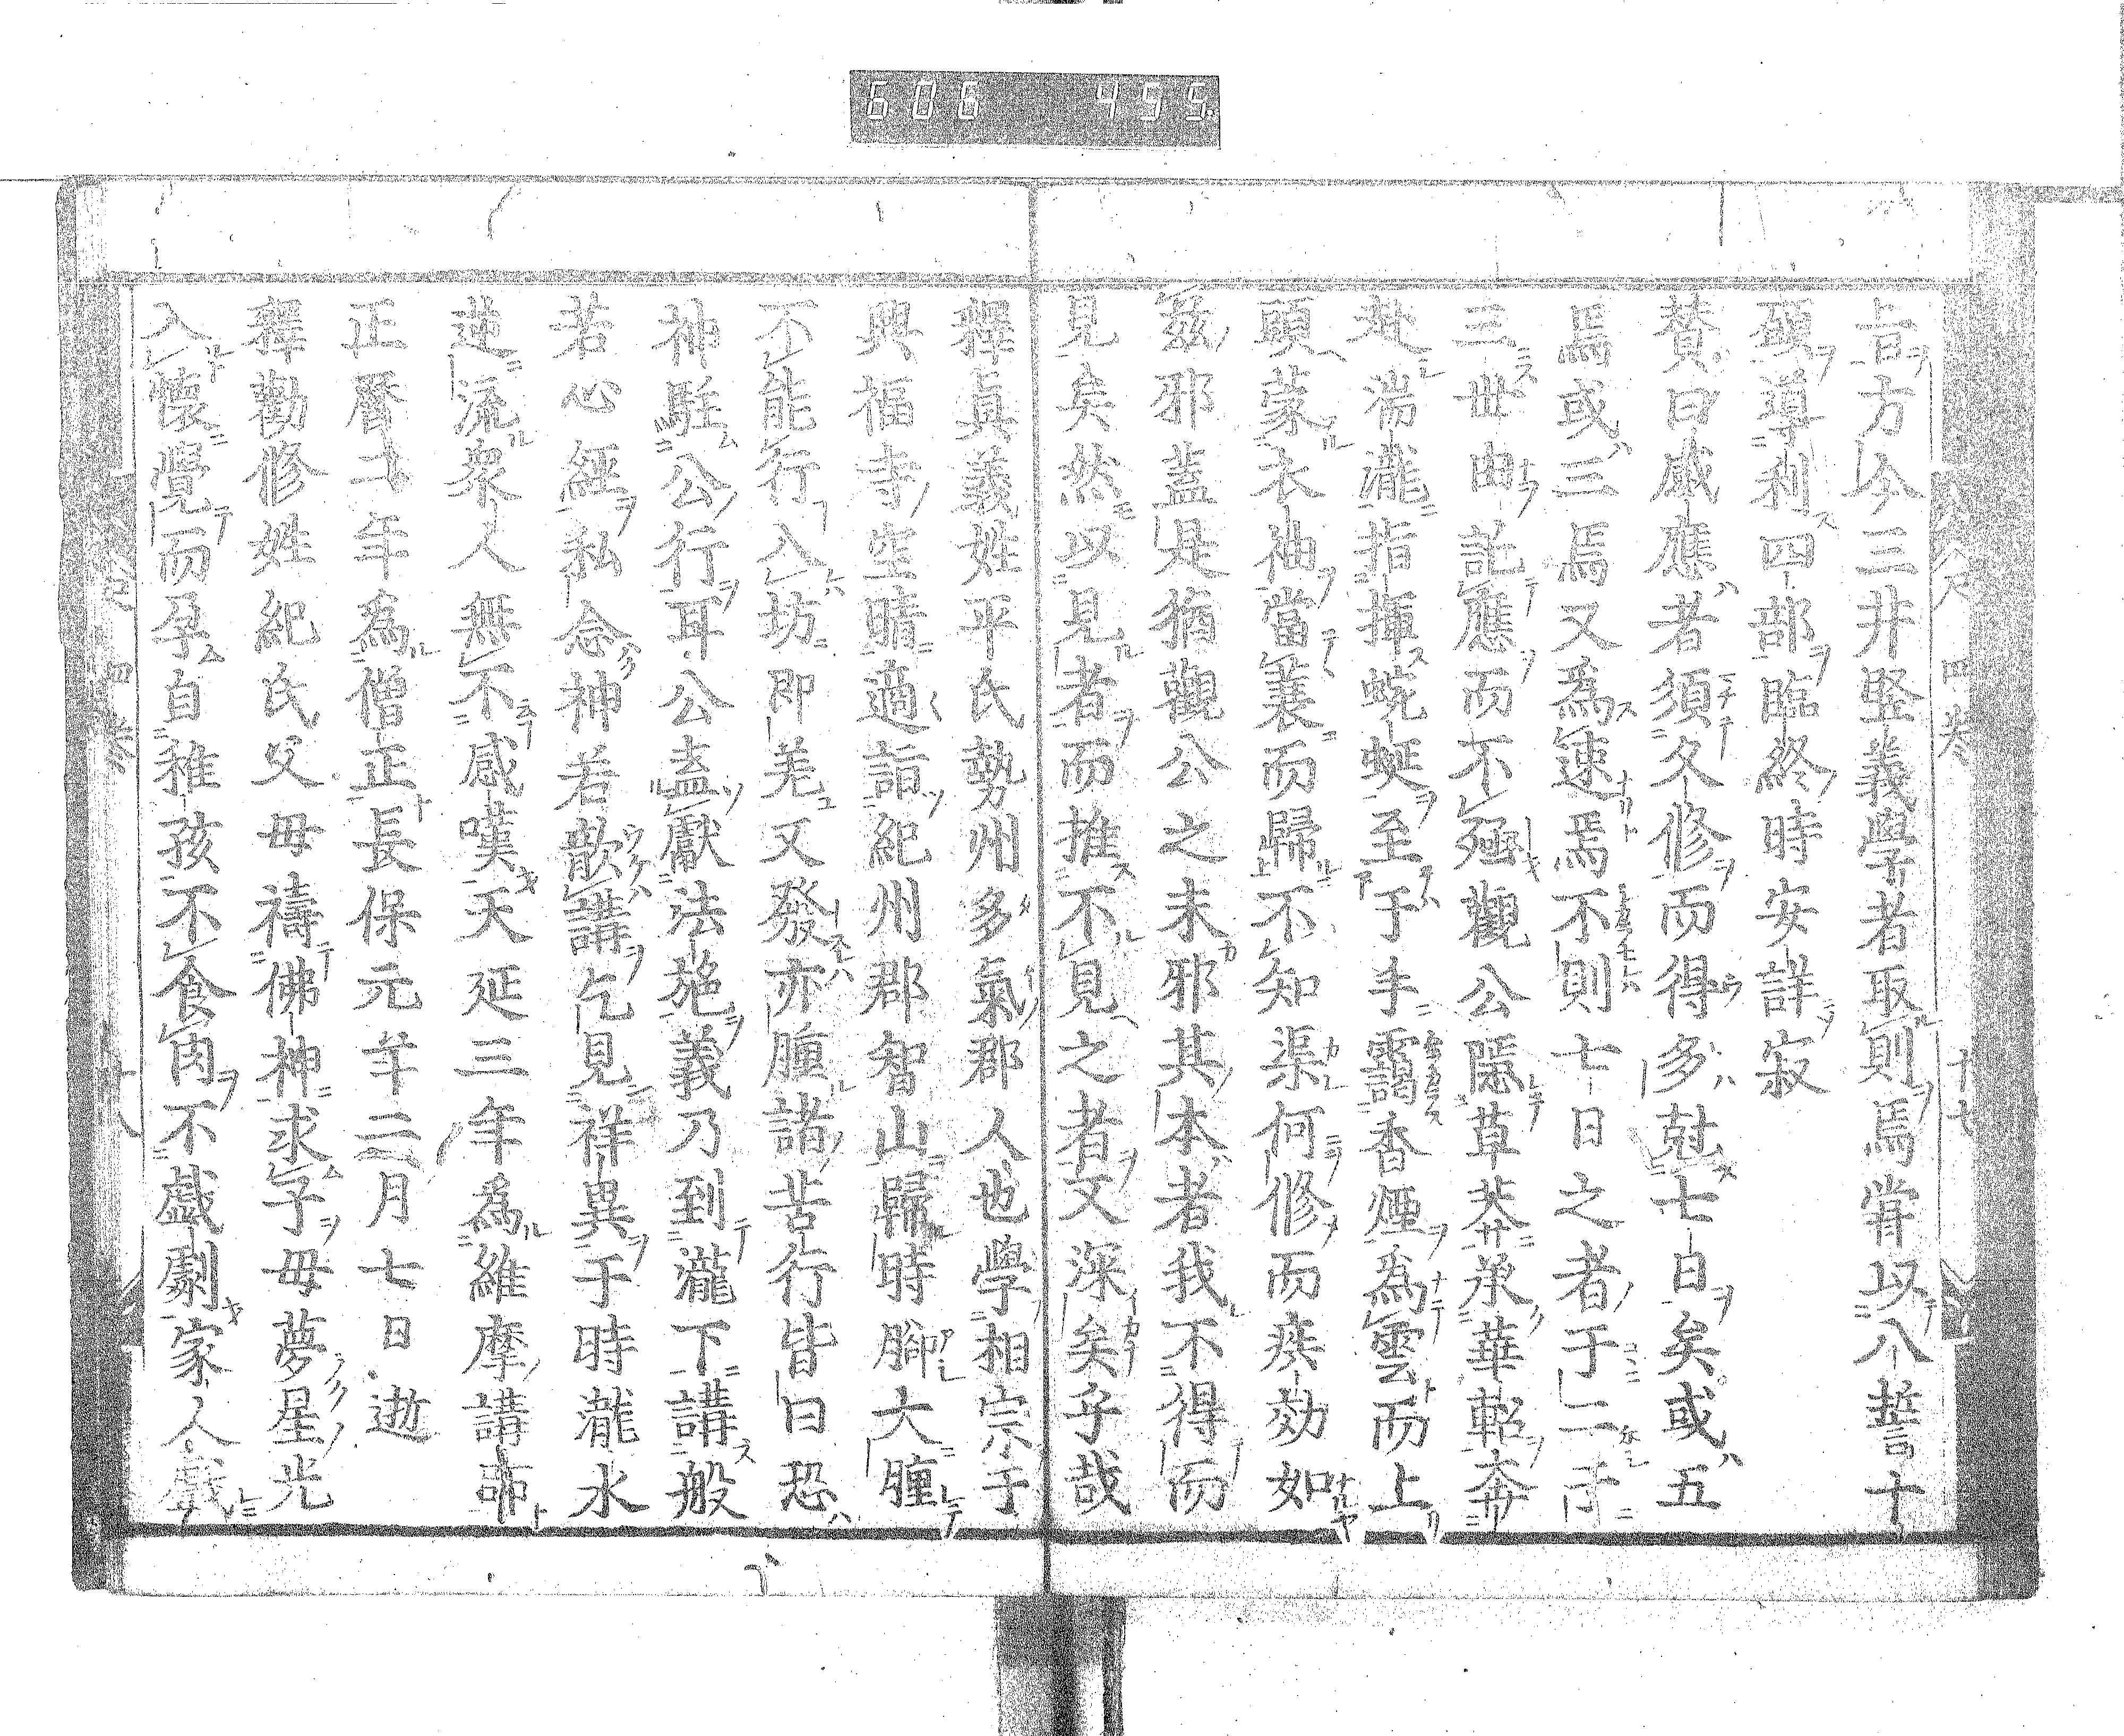 606 495
四卷 十七
旨方今三井竪義學者取則焉甞以八誓十
願導利四部臨終時安詳寂
賛曰感應者須久修而得多尅七日矣或五
焉或三焉又爲速焉不則七日之者于二于
三丗由託應而不殛觀公隱草莽承華軺奔
赴湍瀧指揮蜿蜒至于手靄香煙爲雲而上
頭蒙衣袖當蓑而歸不知渠何修而疾効如
茲邪盖是猶觀公之末邪其本者我不得而
見矣然以見者而推不見之者文深矣乎哉
釋眞義姓平氏勢州多氣郡人也學相宗于
興福寺空晴適詣紀州郡智山歸時脚大腫
不能行入坊即差又發亦腫諸苦行皆曰恐
神駐公行耳公盍獻法施義乃到瀧下講般
若心經私念神若歆講乞見祥異于時瀧水
逆流衆人無不感嘆天延三年爲維摩講師
正曆二年爲僧正長保元年二月七日逝
釋勸修姓紀氏父母禱佛神求子母夢星光
入懷覺而孕自稚孩不食肉不戲劇家人戲
四卷 十八